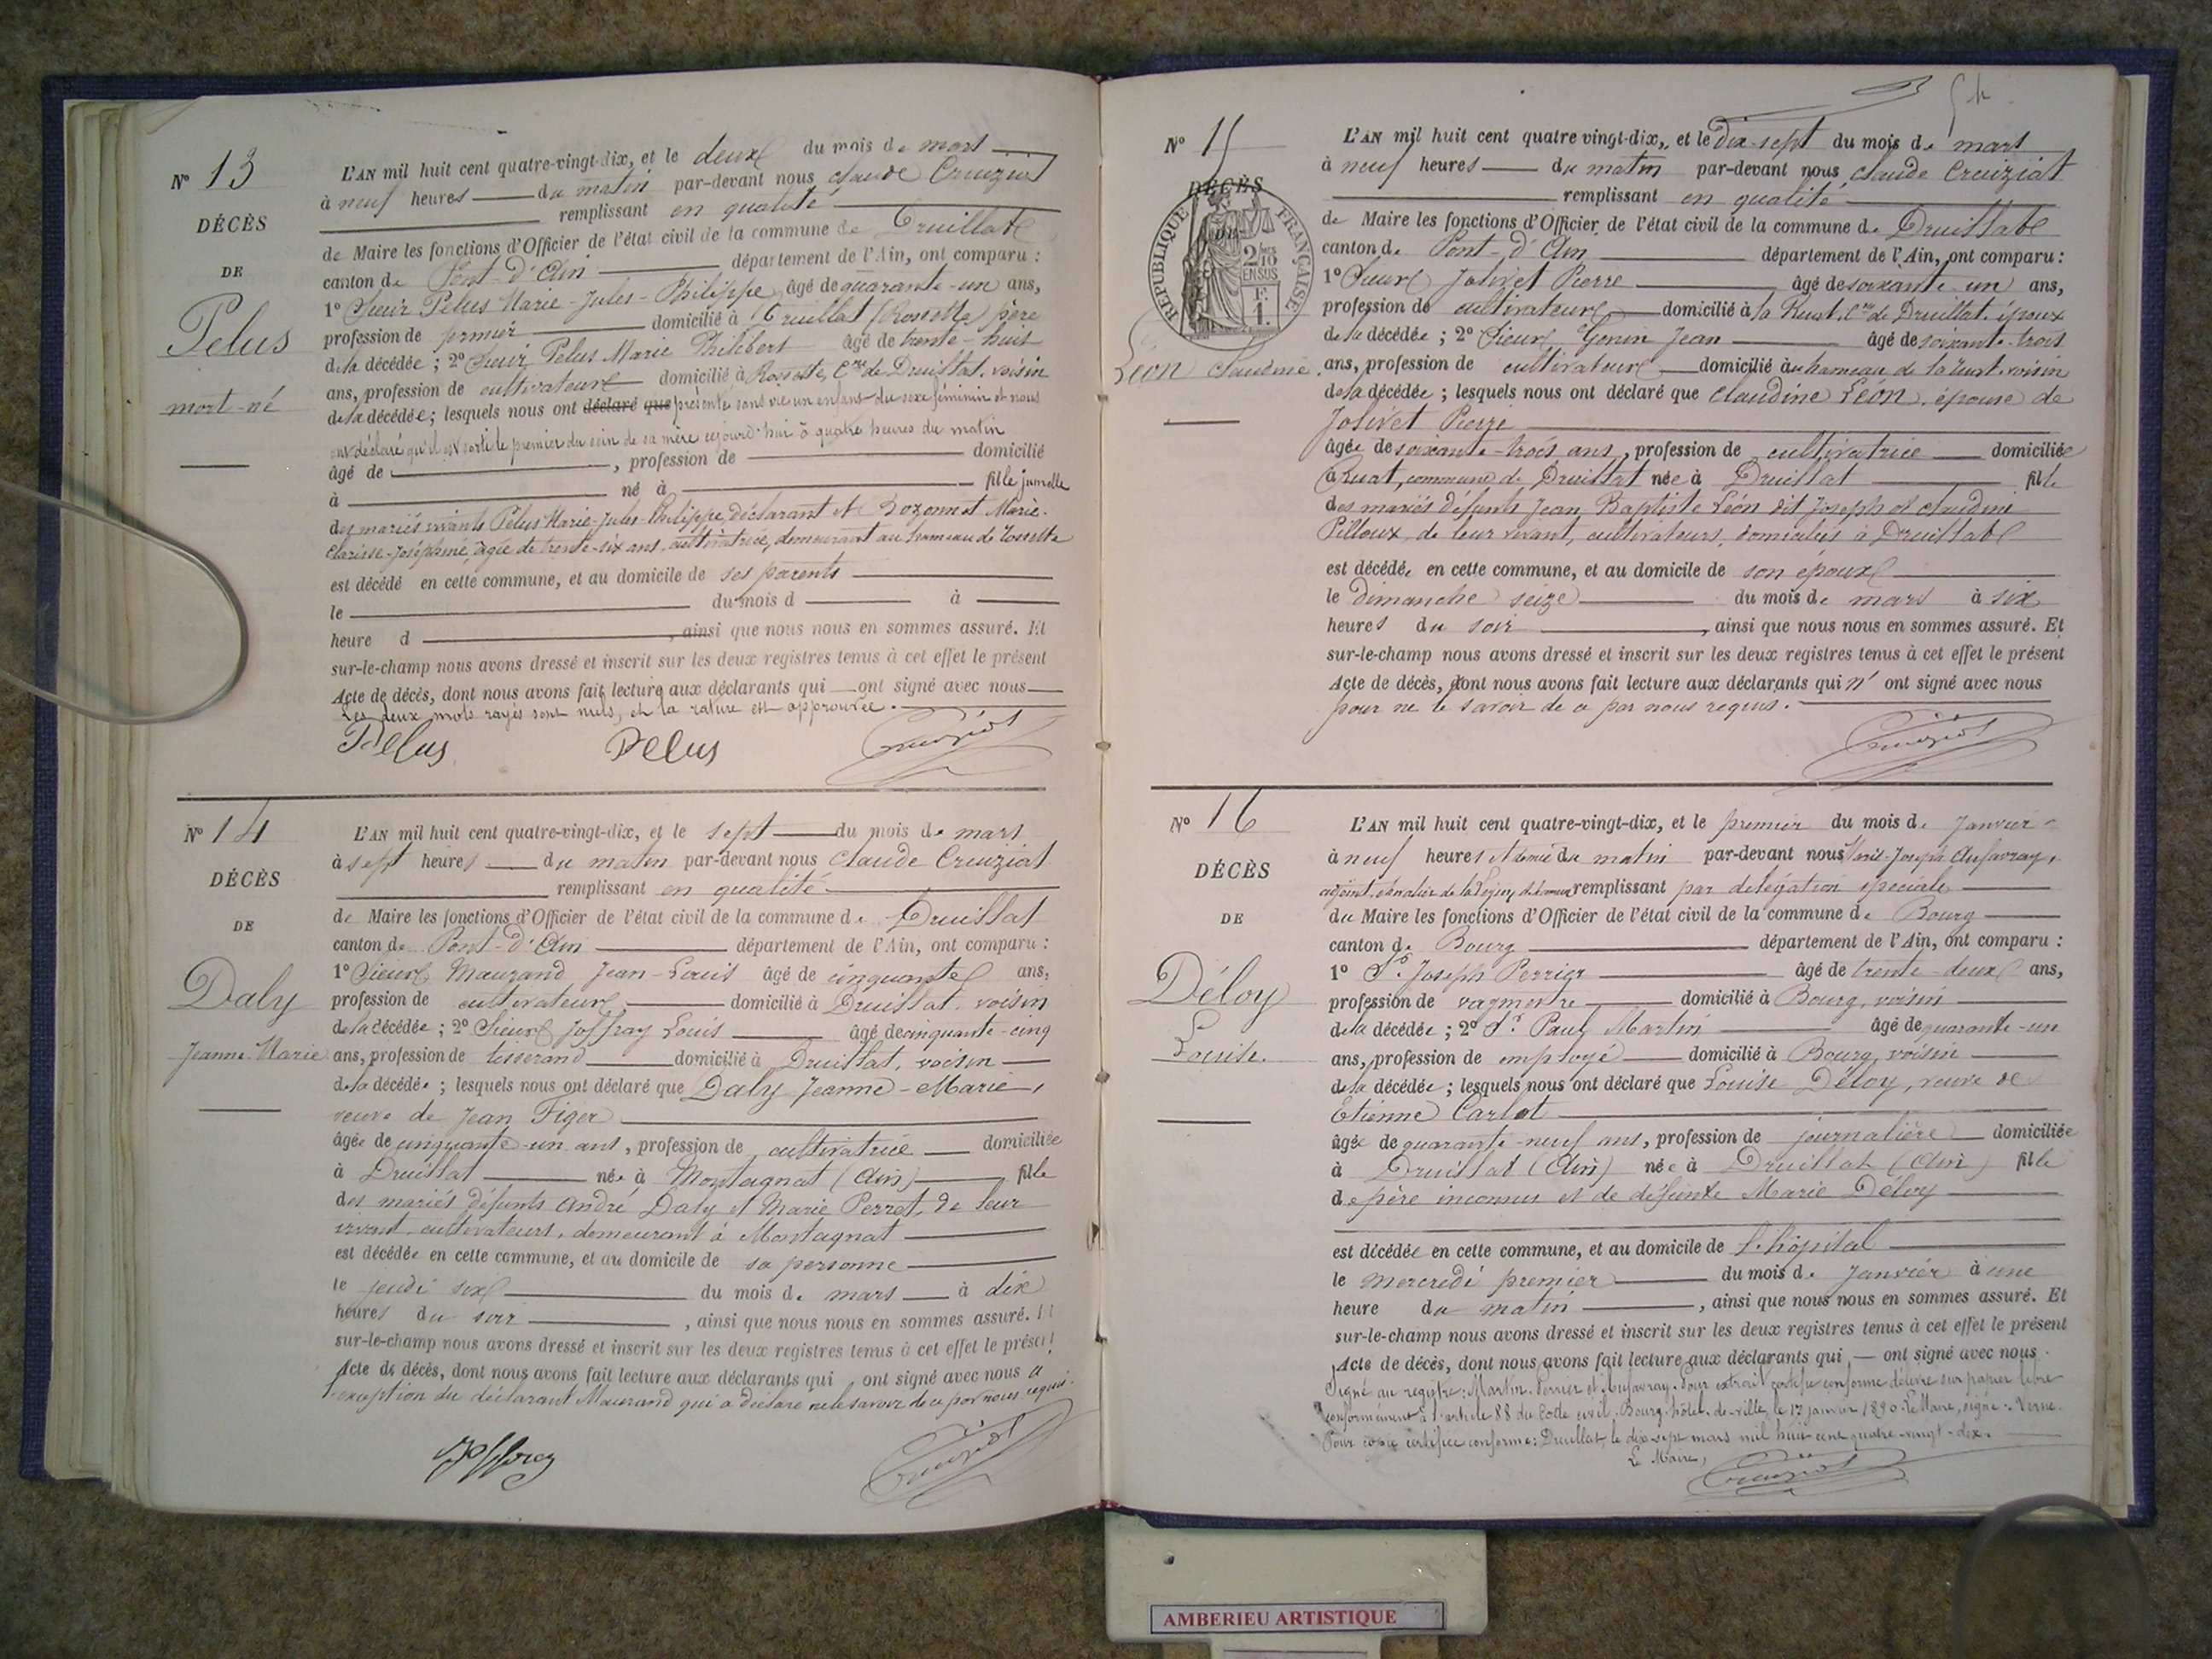 Nº 13
DÉCÈS
DE
Pelus
mort-né
L'AN mil huit cent quatre-vingt-dix, et le deux du mois de mars
à neuf heures du matin par-devant nous Claude Cruiziat
remplissant en qualité
de Maire les fonctions d'Officier de l'état civil de la commune de Druillat
canton de Pont-d'Ain département de l'Ain, ont comparu :
1º Sieur Pelus Marie-Jules-Philippe, âgé de quarante-un ans,
profession de fermier domicilié à Druillat (Rossette) père
de la décédée ; 2º Sieur Pelus Marie Philibert âgé de trente-huit
ans, profession de cultivateur domicilié à Rossette, Cne de Druillat, voisin
de la décédée ; lesquels nous ont déclaré que présenté sans vie un enfant du sexe féminin et nous
ont déclaré qu'il est sorti le premier du sein de sa mère cejourd'hui à quatre heures du matin
âgé de , profession de domicilié
à né à fille jumelle
des mariés vivants Pelus Marie-Jules-Philippe, déclarant et Bozonnet Marie-
Clarisse-Joséphine, âgée de trente-six ans, cultivatrice, demeurant au hameau de Rossette
est décédé en cette commune, et au domicile de ses parents
le du mois d à
heure d , ainsi que nous nous en sommes assuré. Et
sur-le-champ nous avons dressé et inscrit sur les deux registres tenus à cet effet le présent
Acte de décès, dont nous avons fait lecture aux déclarants qui ont signé avec nous
Les deux mots rayés sont nuls, et la rature est approuvée.
Pelus Pelus Cruiziat
Nº 14
DÉCÈS
DE
Daly
Jeanne-Marie
L'AN mil huit cent quatre-vingt-dix, et le sept du mois de mars
à sept heures du matin par-devant nous Claude Cruiziat
remplissant en qualité
de Maire les fonctions d'Officier de l'état civil de la commune de Druillat
canton de Pont-d'Ain département de l'Ain, ont comparu :
1º Sieur Maurand Jean-Louis âgé de cinquante ans,
profession de cultivateur domicilié à Druillat, voisin
de la décédée ; 2º Sieur Joffray Louis âgé de cinquante-cinq
ans, profession de tisserand domicilié à Druillat, voisin
de la décédée ; lesquels nous ont déclaré que Daly Jeanne-Marie,
veuve de Jean Figer
âgée de cinquante-un ans, profession de cultivatrice domiciliée
à Druillat née à Montagnat (Ain) fille
des mariés défunts André Daly et Marie Perret, de leur
vivant, cultivateurs, demeurant à Montagnat
est décédée en cette commune, et au domicile de sa personne
le jeudi six du mois de mars à dix
heures du soir , ainsi que nous nous en sommes assuré. Et
sur-le-champ nous avons dressé et inscrit sur les deux registres tenus à cet effet le présent
Acte de décès, dont nous avons fait lecture aux déclarants qui ont signé avec nous à
l'exception du déclarant Maurand qui a déclaré ne le savoir de ce par nous requis.
Joffray Cruiziat
Nº 15
DÉCÈS
DE
RÉPUBLIQUE FRANÇAISE
2/10 EN SUS
F. 1.
Léon Claudine
L'AN mil huit cent quatre vingt-dix, et le dix-sept du mois de mars
à neuf heures du matin par-devant nous Claude Cruiziat
remplissant en qualité
de Maire les fonctions d'Officier de l'état civil de la commune de Druillat
canton de Pont-d'Ain département de l'Ain, ont comparu :
1º Sieur Jolivet Pierre âgé de soixante-un ans,
profession de cultivateur domicilié à la Ruat, Cne de Druillat, époux
de la décédée ; 2º Sieur Gonin Jean âgé de soixante-trois
ans, profession de cultivateur domicilié au hameau de la Ruat, voisin
de la décédée ; lesquels nous ont déclaré que Claudine Léon, épouse de
Jolivet Pierre
âgée de soixante-trois ans, profession de cultivatrice domiciliée
à Ruat, commune de Druillat née à Druillat fille
des mariés défunts Jean Baptiste Léon dit Joseph et Claudine
Pilloux, de leur vivant, cultivateurs, domiciliés à Druillat
est décédée en cette commune, et au domicile de son époux
le dimanche seize du mois de mars à six
heures du soir , ainsi que nous nous en sommes assuré. Et
sur-le-champ nous avons dressé et inscrit sur les deux registres tenus à cet effet le présent
Acte de décès, dont nous avons fait lecture aux déclarants qui n'ont signé avec nous
pour ne le savoir de ce par nous requis.
Cruiziat
Nº 16
DÉCÈS
DE
Déloy
Louise.
L'AN mil huit cent quatre-vingt-dix, et le premier du mois de Janvier
à neuf heures et demie du matin par-devant nous Marie-Joseph Aufavray,
adjoint, chevalier de la Légion d'honneur remplissant par délégation spéciale
du Maire les fonctions d'Officier de l'état civil de la commune de Bourg
canton de Bourg département de l'Ain, ont comparu :
1º Sr Joseph Perrier âgé de trente-deux ans,
profession de vagmestre domicilié à Bourg, voisin
de la décédée ; 2º Sr Paul Martin âgé de quarante-un
ans, profession de employé domicilié à Bourg, voisin
de la décédée ; lesquels nous ont déclaré que Louise Déloy, veuve de
Etienne Carlot
âgée de quarante-neuf ans, profession de journalière domiciliée
à Druillat (Ain) née à Druillat (Ain) fille
de père inconnu et de défunte Marie Déloy
est décédée en cette commune, et au domicile de l'hôpital
le mercredi premier du mois de Janvier à une
heure du matin , ainsi que nous nous en sommes assuré. Et
sur-le-champ nous avons dressé et inscrit sur les deux registres tenus à cet effet le présent
Acte de décès, dont nous avons fait lecture aux déclarants qui ont signé avec nous.
Signé au registre : Martin, Perrier et Aufavray. Pour extrait certifié conforme délivré sur papier libre
conformément à l'article 88 du Code civil. Bourg, hôtel-de-ville, le 17 janvier 1890. Le Maire, signé : Verne.
Pour copie certifiée conforme : Druillat, le dix-sept mars mil huit cent quatre-vingt-dix.
Le Maire,
Cruiziat
AMBERIEU ARTISTIQUE